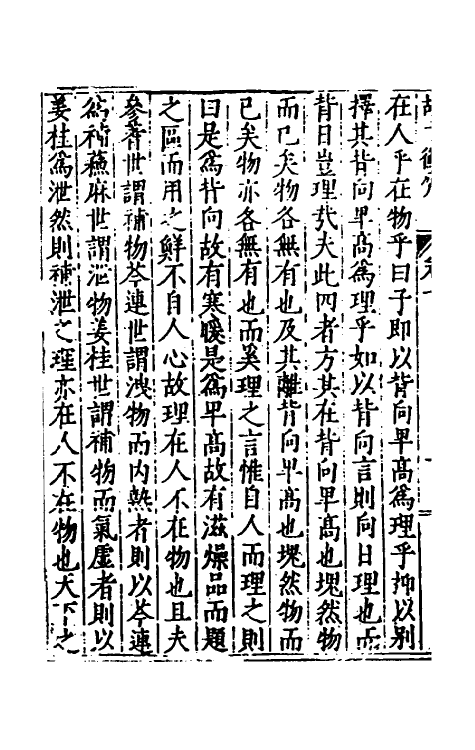 在人乎在物乎曰子即以背向早高爲理乎抑以别
擇其背向早高爲理乎如以背向言則向日理也而
背日豈理㦲夫此四者方其在背向早高也塊然物
而已矣物各無有也及其離背向早高也塊然物而
已矣物亦各無有也而奚理之言惟自人而理之則
曰是爲背向故有寒暖是爲早高故有滋燥品而題
之區而用之鮮不自人心故理在人不在物也且夫
參蓍世謂補物芩連世謂洩物而内熱者則以芩連
爲補蘇麻世謂泄物姜桂世謂補物而氣虛者則以
姜桂爲泄然則補泄之理亦在人不在物也天下之